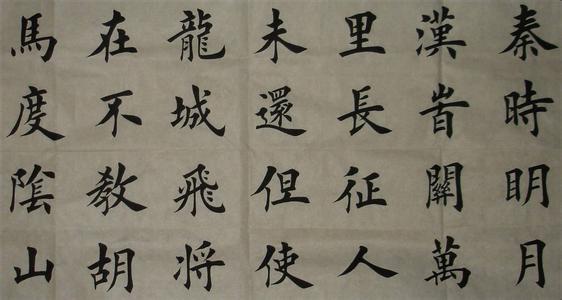 秦時明月
漢旹關萬
里長征人
未還但使
龍城飛将
在不教胡
馬度陰山